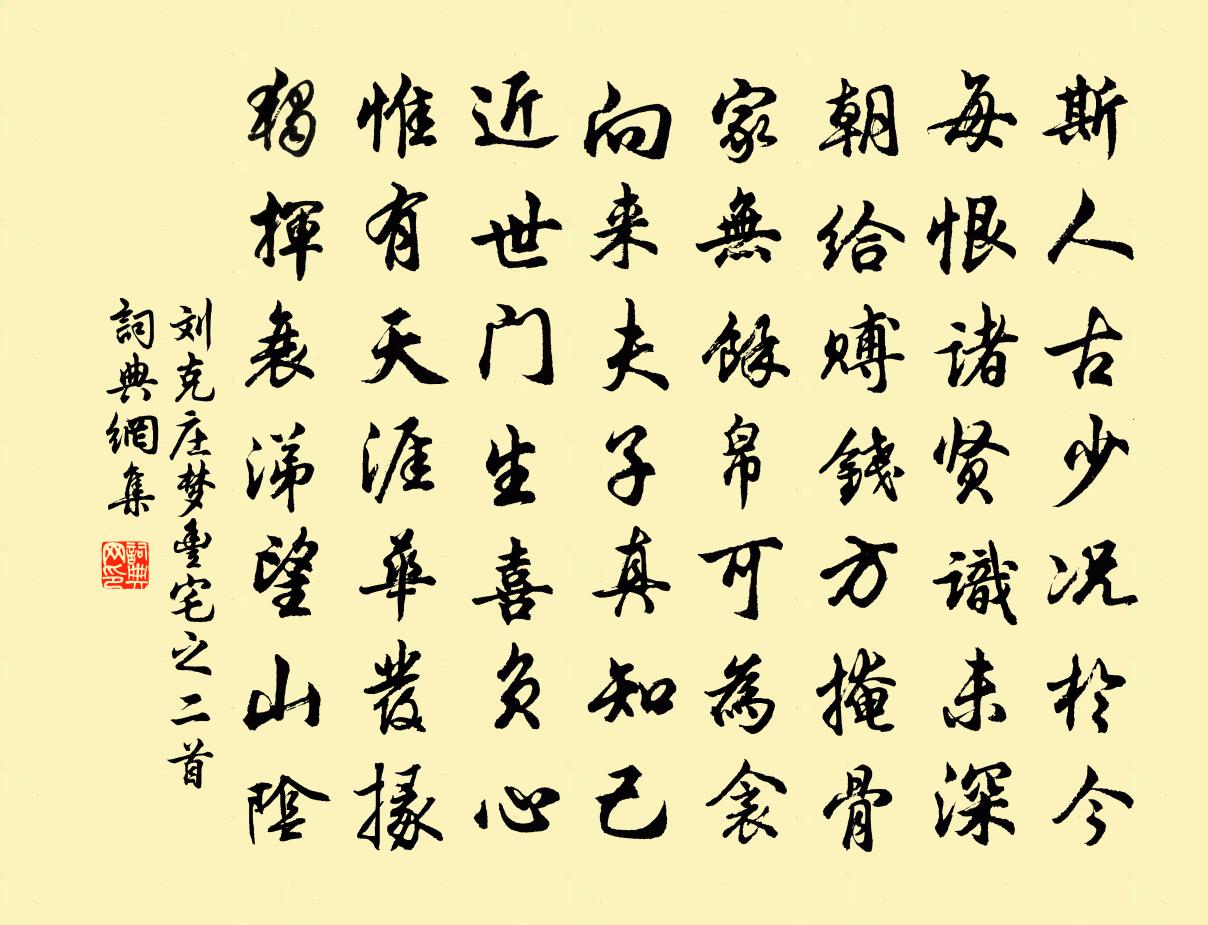 斯人古少况於今
每恨诸贤識未深
朝给赙錢方掩骨
家無餘帛可為衾
向来夫子真知己
近世门生喜负心
惟有天涯華發掾
独揮衰涕望山陰
刘克庄梦豊宅之二首
詞典網集
詞典网印